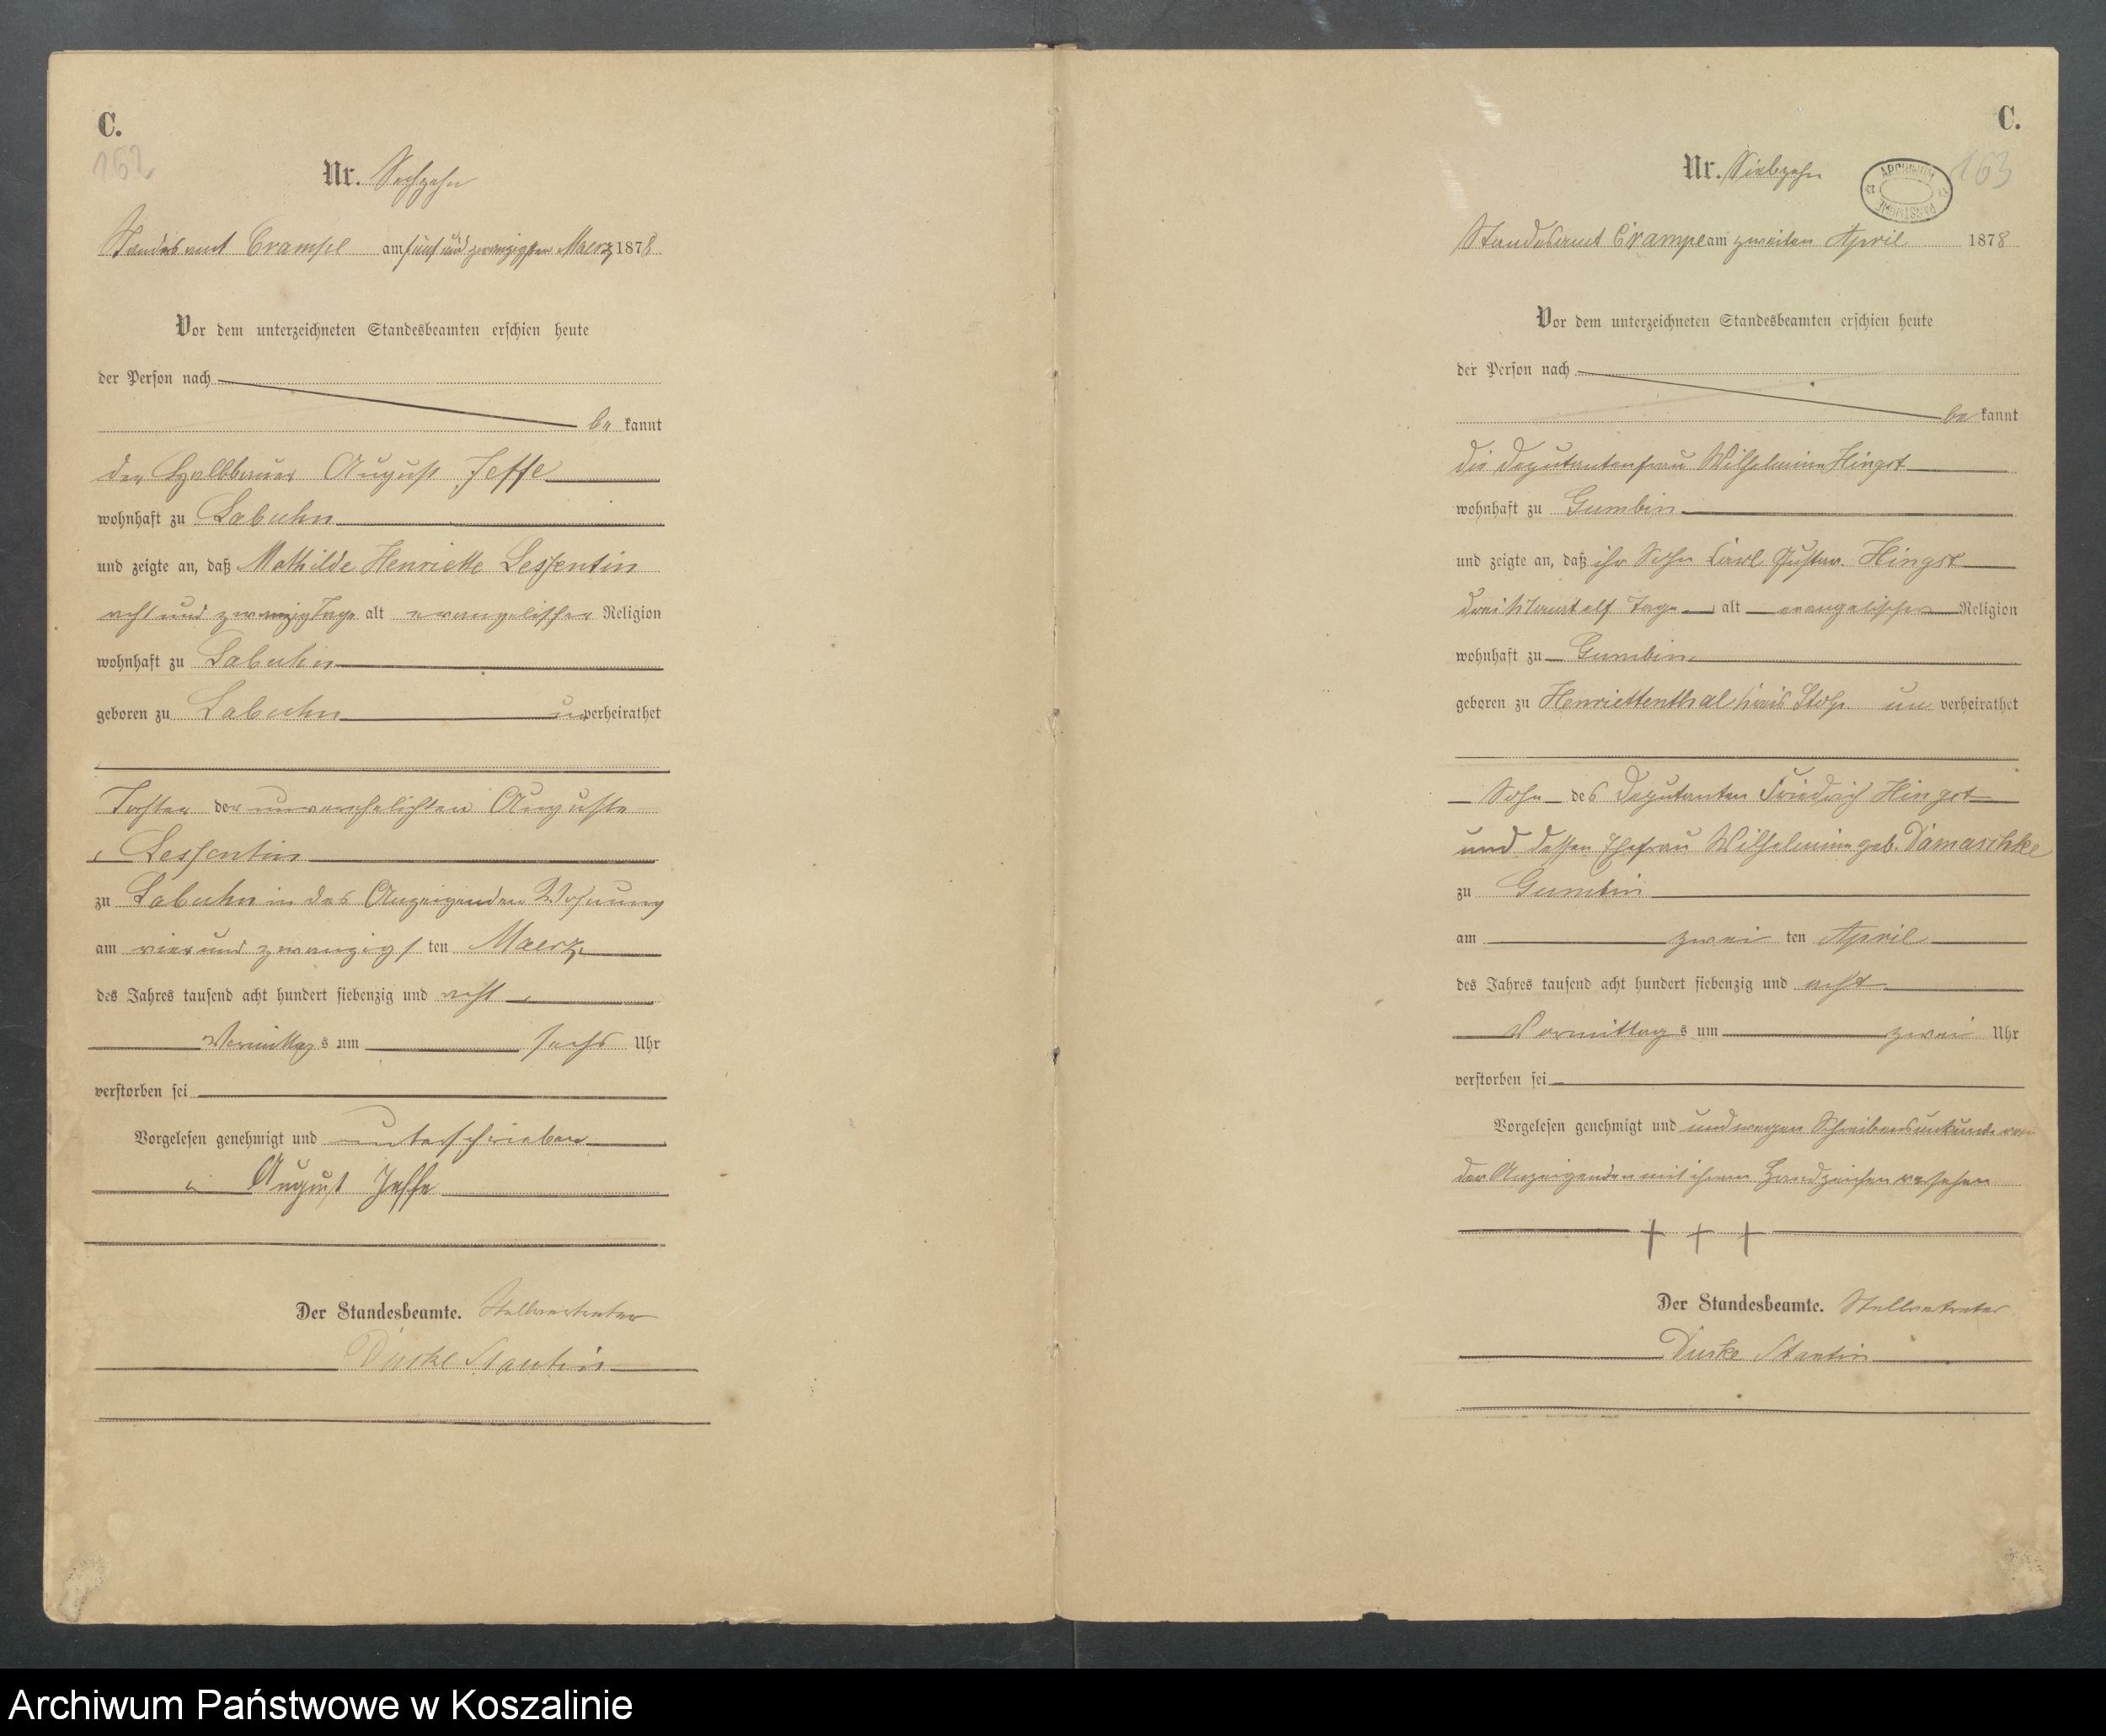 C.
162
Nr. Sechzehn
Standesamt Crampe am fünf und zwanzigsten Maerz 1878
Vor dem unterzeichneten Standesbeamten erschien heute
der Person nach
be kannt
der Halbbauer August Jesse
wohnhaft zu Labuhn
und zeigte an, daß Mathilde Henriette Lessentin
acht und zwanzig Tage alt evangelischer Religion
wohnhaft zu Labuhn
geboren zu Labuhn unverheirathet
Tochter der unverehelichten Auguste
Lessentin
zu Labuhn in des Anzeigenden Wohnung
am vier und zwanzigsten Maerz
des Jahres tausend acht hundert siebenzig und acht
Vormittags um sechs Uhr
verstorben sei
Vorgelesen genehmigt und unterschrieben
August Jesse
Der Standesbeamte. Stellvertreter
C.
163
Nr. Siebzehn
ARCHIWUM PAŃSTWOWE
Standesamt Crampe am zweiten April 1878
Vor dem unterzeichneten Standesbeamten erschien heute
der Person nach
be kannt
die Deputantenfrau Wilhelmine Hingst
wohnhaft zu Gumbin
und zeigte an, daß ihr Sohn Carl Gustav Hingst
drei Monat elf Tage alt evangelischer Religion
wohnhaft zu Gumbin
geboren zu Henriettenthal Kreis Stolp un verheirathet
Sohn des Deputanten Friedrich Hingst
und dessen Ehefrau Wilhelmine geb. Damaschke
zu Gumbin
am zwei ten April
des Jahres tausend acht hundert siebenzig und acht
Vormittags um zwei Uhr
verstorben sei
Vorgelesen genehmigt und und wegen Schreibensunkunde von
der Anzeigenden mit ihrem Handzeichen versehen
+ + +
Der Standesbeamte. Stellvertreter
Archiwum Państwowe w Koszalinie